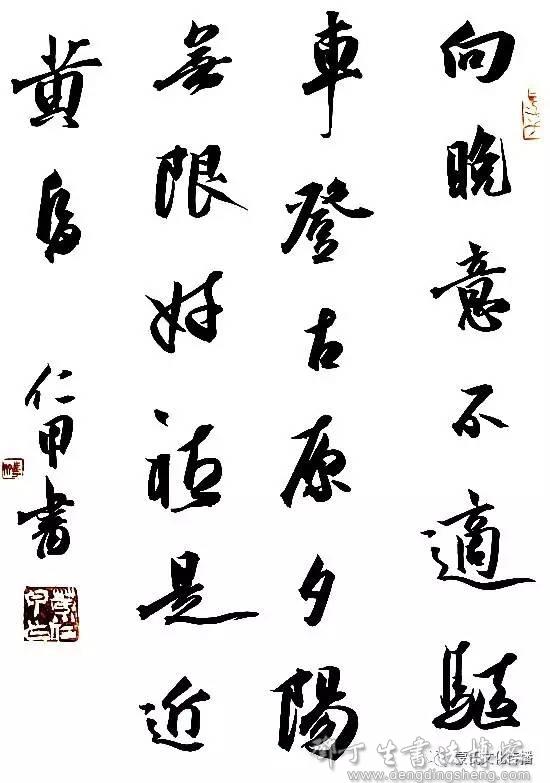 向晚意不適驅
車登古原夕陽
無限好祗是近
黄昏
仁甲書
邓丁生書法博客
文化传播
www.dengdingsheng.com